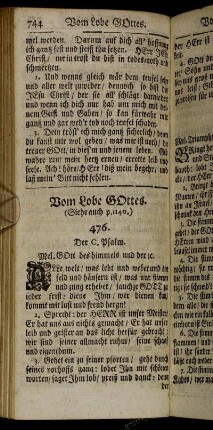 744 Vom Lobe GOttes.
mel werden. Darum auf dich all' hoffnung
ich gantz fest und steiff thu setzen. HErr JEsu
Christ, mein trost du bist in todes-noth und
schmertzen.
2. Und wenns gleich wär dem teufel sehr
und aller welt zuwider, dennoch so bist du
JEsu Christ, der sie all' schlägt darnieder
und wenn ich dich nur hab um mich mit dei-
nem Geist und Gaben, so kan fürwahr mir
gantz und gar wedr tod noch teufel schaden.
3. Dein tröst' ich mich gantz sicherlich, denn
du kanst mir wol geben, was mir ist noth, du
treuer GOtt, in dies'm und jenem leben. Gib
wahre reu, mein hertz erneu, errette leib und
seele. Ach! höre, HErr, diß mein begehr, und
laß mein' Bitt nicht fehlen.
Vom Lobe GOttes.
(Siehe auch p. 1140.)
476.
Der C. Psalm.
Mel. GOtt des himmels und der ic.
Alle welt, was lebt und webet und in
feld und häusern ist, was nur stimm
und zung erhebet, jauchze GOtt zu
jeder frist: diene Ihm, wer dienen kan,
kommt mit lust und freud heran!
2. Sprecht: der HERR ist unser Meister,
Er hat uns aus nichts gemacht, Er hat unser
leib und geister an das licht herfür gebracht;
wir sind seiner allmacht ruhm, seine schaaf
und eigenthum.
3. Gehet ein zu seiner pforten, geht durch
seines vorhofs gang: lobet Ihn mit schönen
worten, saget Ihm lob, preiß und danck: denn